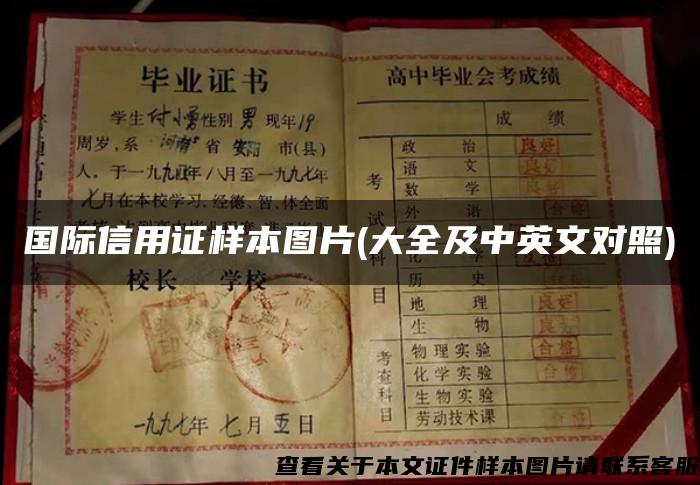 毕业证书
学生付小勇性别男现年19
周岁,系河南省安阳市(县)
人。于一九九四年八月至一九九七年
七月在本校学习、经德、智、体全面
国际信用证样本图片(大全及中英文对照)
校长 学校
一九九七年七月五日
高中毕业会考成绩
成绩
考试科目
政治 良好
语文 良好
数学 良好
外语
历史
地理 良好
生物 良好
考查科目
物理实验 合格
化学实验 合格
生物实验
劳动技术课 合格
查看关于本文证件样本图片请联系客服